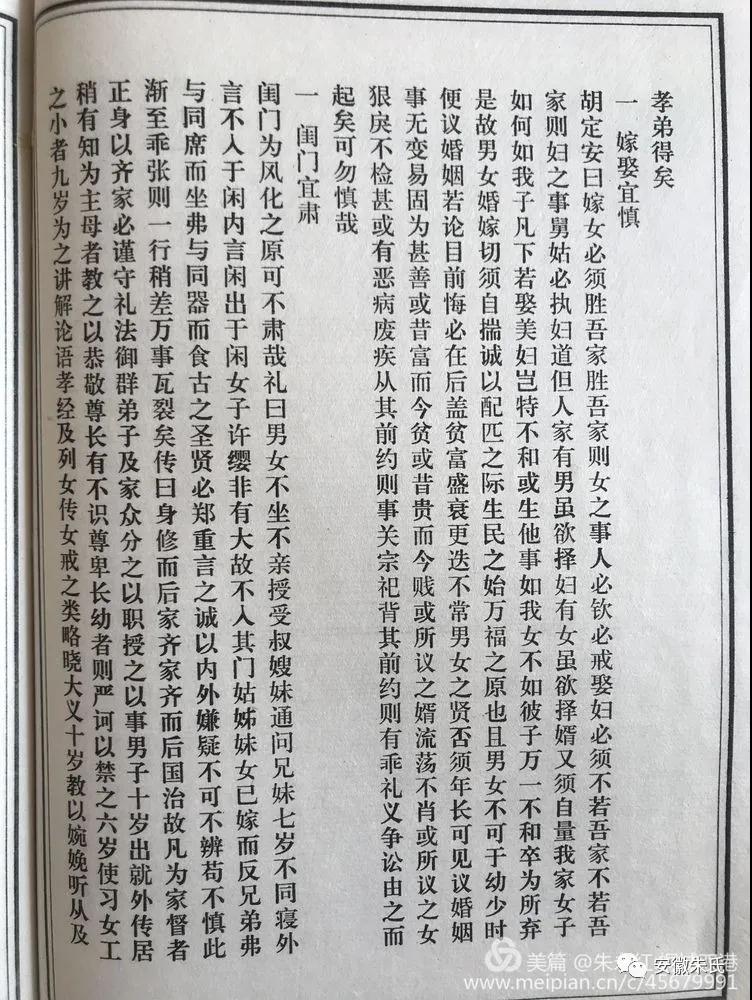 孝弟得矣
一 嫁娶宜慎
胡定安曰嫁女必须胜吾家胜吾家则女之事人必钦必戒娶妇必须不若吾家不若吾
家则妇之事舅姑必执妇道但人家有男虽欲择妇有女虽欲择婿又须自量我家女子
如何如我子凡下若娶美妇岂特不和或生他事如我女不如彼子万一不和卒为所弃
是故男女婚嫁切须自揣诚以配匹之际生民之始万福之原也且男女不可于幼少时
便议婚姻若论目前悔必在后盖贫富盛衰更迭不常男女之贤否须年长可见议婚姻
事无变易固为甚善或昔富而今贫或昔贵而今贱或所议之婿流荡不肖或所议之女
狠戾不检甚或有恶病废疾从其前约则事关宗祀背其前约则有乖礼义争讼由之而
起矣可勿慎哉
一 闺门宜肃
闺门为风化之原可不肃哉礼曰男女不坐不亲授受叔嫂妹通问兄妹七岁不同寝外
言不入于闲内言闲出于闲女子许缨非有大故不入其门姑姊妹女已嫁而反兄弟弗
与同席而坐弗与同器而食古之圣贤必郑重言之诚以内外嫌疑不可不辨苟不慎此
渐至乖张则一行稍差万事瓦裂矣传曰身修而后家齐家齐而后国治故凡为家督者
正身以齐家必谨守礼法御群弟子及家众分之以职授之以事男子十岁出就外传居
稍有知为主母者教之以恭敬尊长有不识尊卑长幼者则严诃以禁之六岁使习女工
之小者九岁为之讲解论语孝经及列女传女戒之类略晓大义十岁教以婉娩听从及
美篇 @朱
安徽朱氏
www.meipian.cn/c/45679991